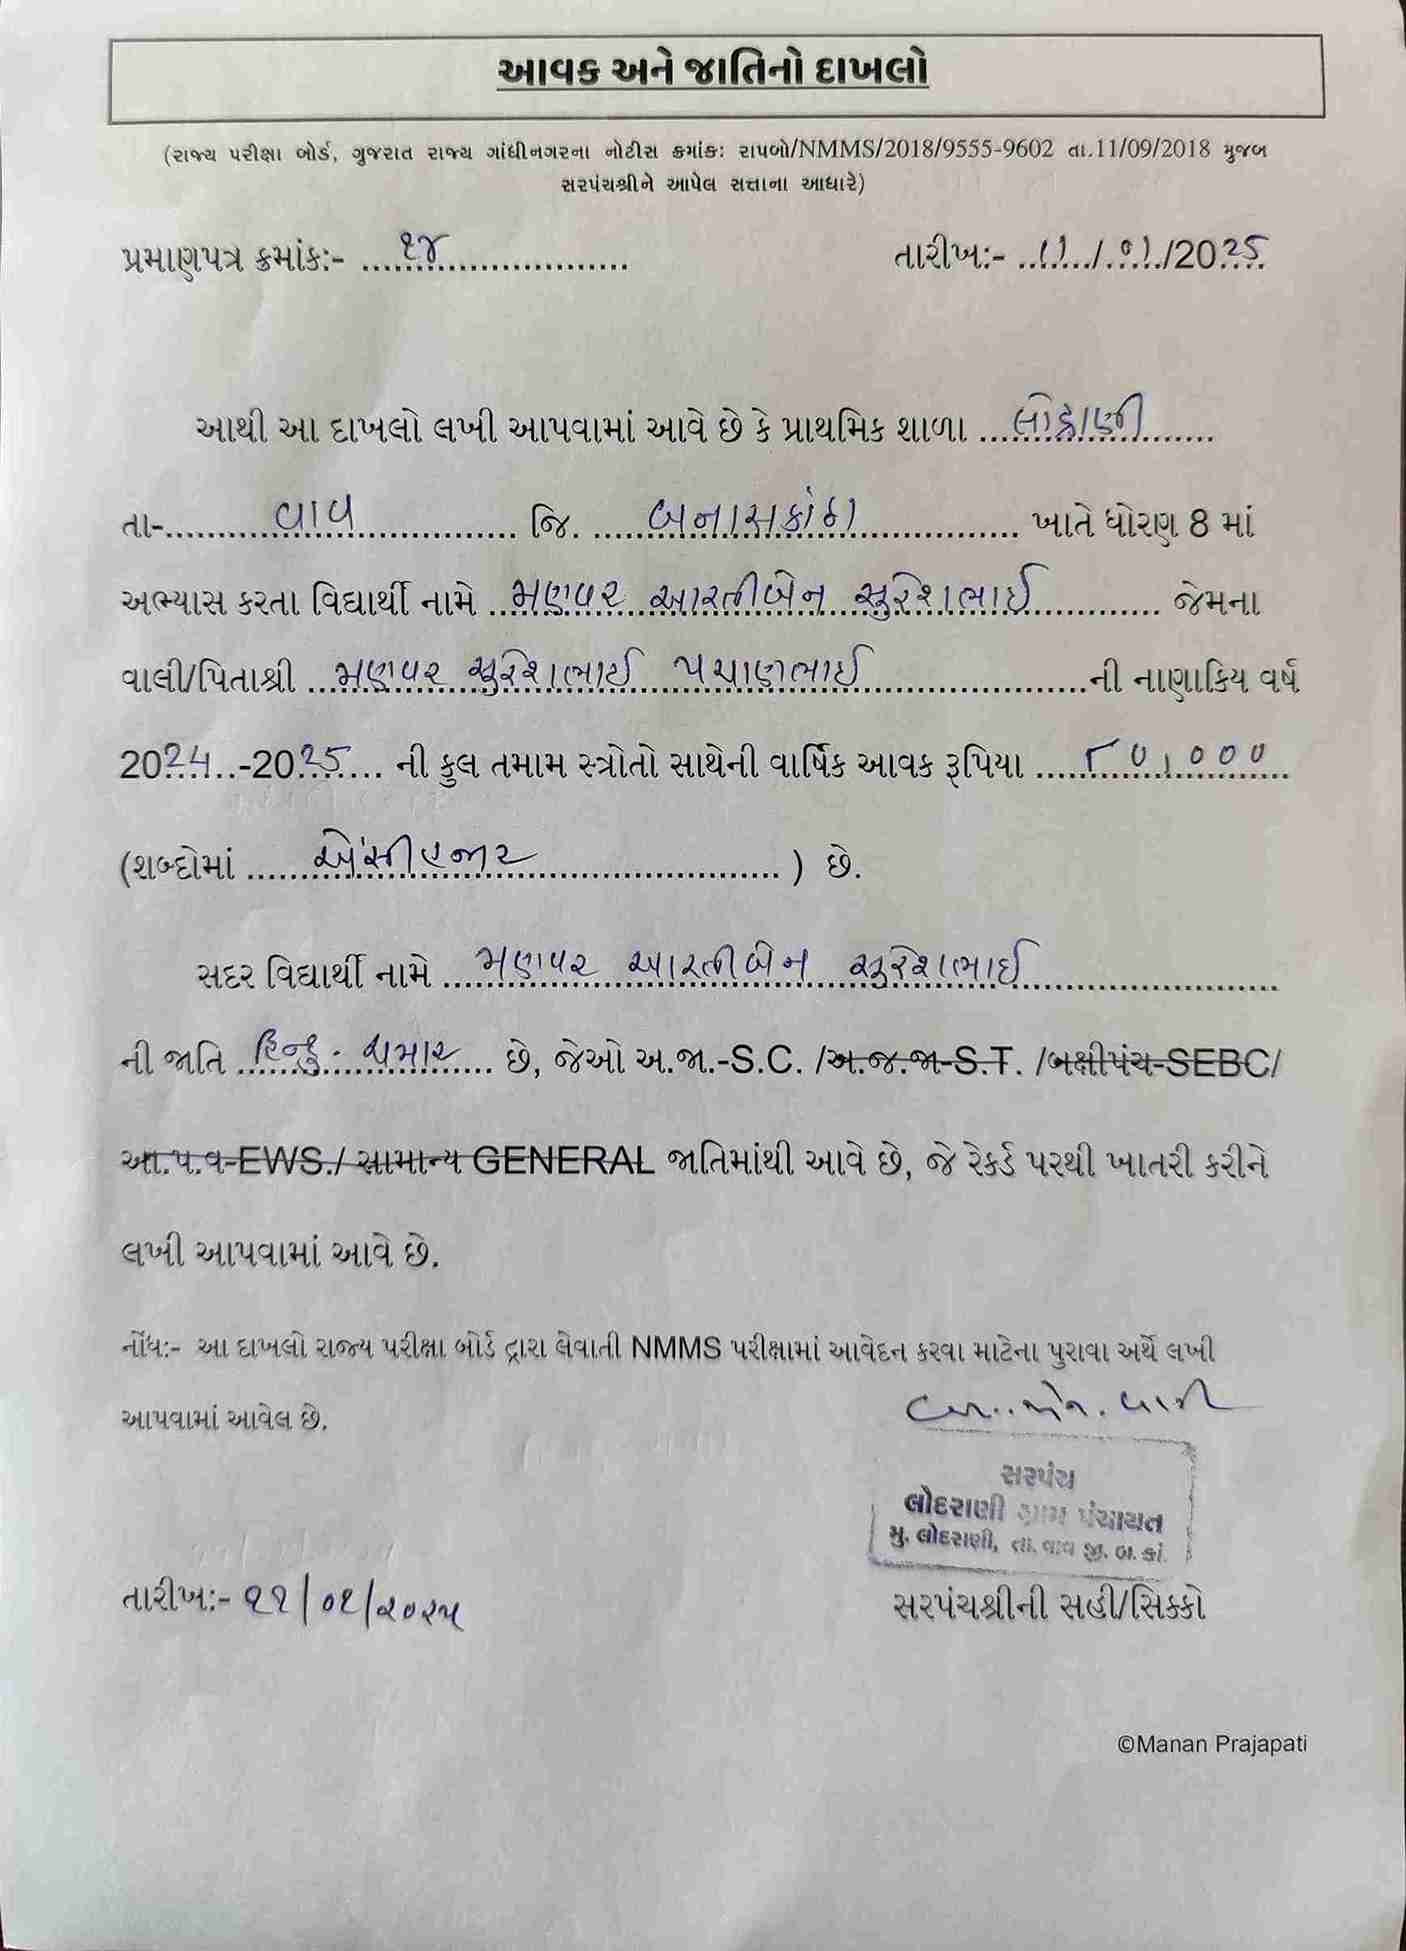 આવક અને જાતિનો દાખલો
(રાજ્ય પરીક્ષા બોર્ડ, ગુજરાત રાજ્ય ગાંધીનગરના નોટીસ ક્રમાંક: રાપબો/NMMS/2018/9555-9602 તા.11/09/2018 મુજબ
સરપંચશ્રીને આપેલ સત્તાના આધારે)
પ્રમાણપત્ર ક્રમાંક:- ૧૪ તારીખ:- 11/01/2025
આથી આ દાખલો લખી આપવામાં આવે છે કે પ્રાથમિક શાળા લોદ્રાણી
તા- વાવ જિ. બનાસકાંઠા ખાતે ધોરણ 8 માં
અભ્યાસ કરતા વિદ્યાર્થી નામે મણવર આરતીબેન સુરેશભાઈ જેમના
વાલી/પિતાશ્રી મણવર સુરેશભાઈ પચાણભાઈ ની નાણાકિય વર્ષ
2024-2025 ની કુલ તમામ સ્ત્રોતો સાથેની વાર્ષિક આવક રૂપિયા ૮૦,૦૦૦
(શબ્દોમાં એંસીહજાર ) છે.
સદર વિદ્યાર્થી નામે મણવર આરતીબેન સુરેશભાઈ
ની જાતિ હિન્દુ ચમાર છે, જેઓ અ.જા.-S.C. /અ.જ.જા-S.T. /બક્ષીપંચ-SEBC/
આ.પ.વ-EWS./ સામાન્ય GENERAL જાતિમાંથી આવે છે, જે રેકર્ડ પરથી ખાતરી કરીને
લખી આપવામાં આવે છે.
નોંધ:- આ દાખલો રાજ્ય પરીક્ષા બોર્ડ દ્વારા લેવાતી NMMS પરીક્ષામાં આવેદન કરવા માટેના પુરાવા અર્થે લખી
આપવામાં આવેલ છે.
સરપંચ
લોદરાણી ગ્રામ પંચાયત
મુ. લોદરાણી, તા. વાવ જી. બ. કાં.
તારીખ:- ૧૧/૦૧/૨૦૨૫ સરપંચશ્રીની સહી/સિક્કો
©Manan Prajapati